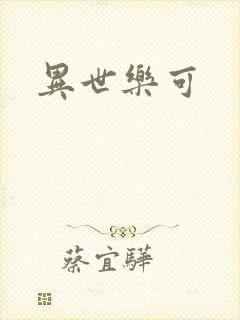 異世樂可
蔡宜驊